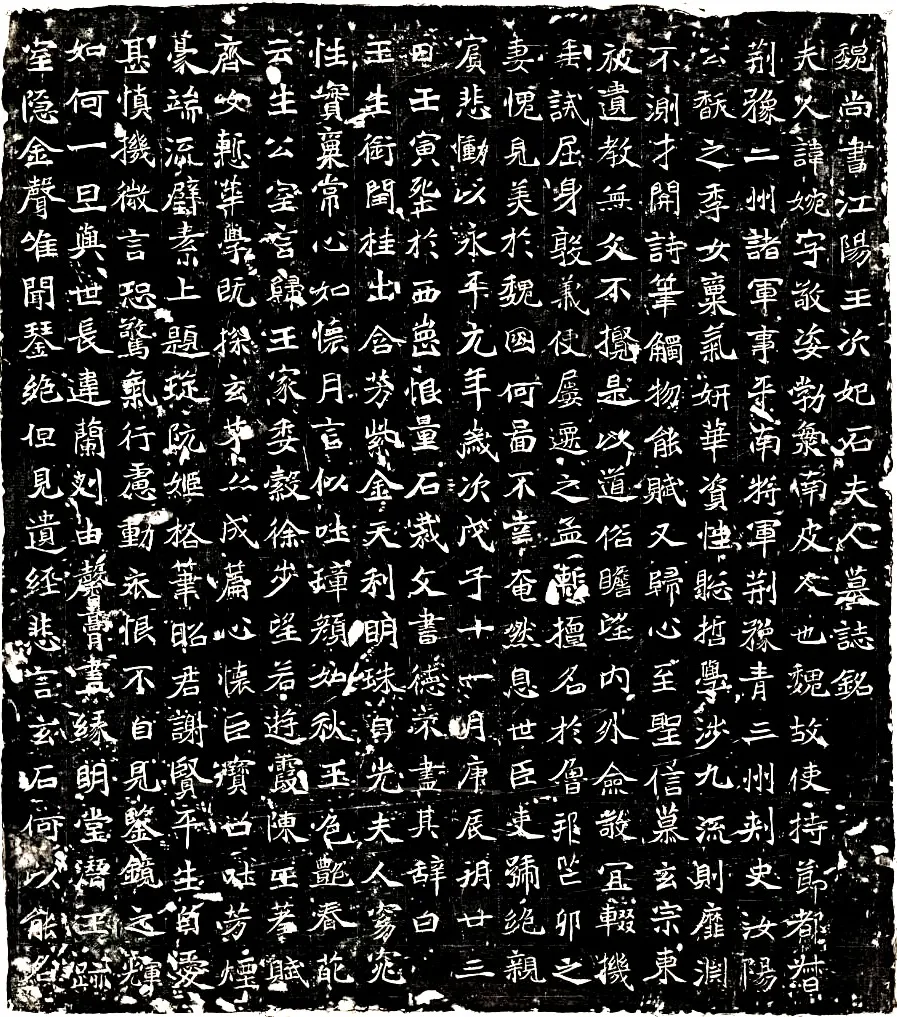 魏尚書江陽王次妃石夫人墓誌銘
夫人諱婉字敬姿勃海南皮人也魏故使持節都督
荆豫二州諸軍事平南將軍荆豫青三州刺史汝陽
公馥之季女稟氣妍華資性聡哲學涉九流則靡淵
不測才開詩筆觸物能賦又歸心至聖信慕玄宗東
被遺教無文不攬是以道俗瞻望内外僉敬冝輟機
斈誡屈身敦義使屢遷之孟蹔擅名於魯邦芒卯之
妻愧見美於魏國何啚不幸奄然息世臣吏號絶親
賓悲慟以永平元年歳次戊子十一月庚辰朔廿三
日壬寅塟於西崗恨量石裁文書德不盡其辞曰
玉生衘閏桂出含芳紫金天利明珠自光夫人窈窕
性實稟常心如懷月言似吐璋顔如秋玉色艷春葩
云生公室言歸王家委縠徐步望若遊霞陳王羞賦
齊女慙華學既探玄才亦成篇心懷巨寶口吐芳煙
豪端流璧素上題琁阮姬格筆昭君謝賢平生自愛
甚慎機微言恐驚氣行慮動衣恨不自見鑒鏡之輝
如何一旦與世長違蘭剡由馨膏盡緣明堂潛玉跡
室隐金聲唯聞琴絶但見遺經悲言玄石何以能名